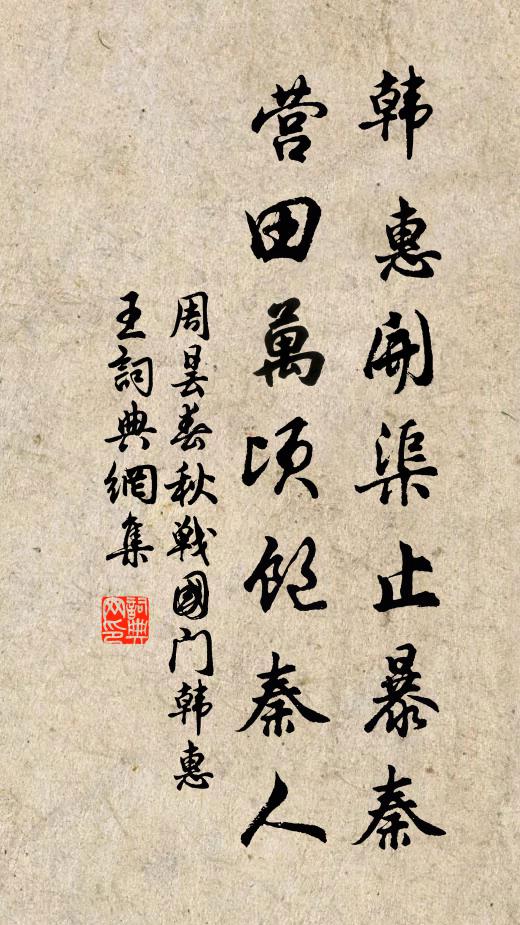 韩惠開渠止暴秦
营田萬顷饱秦人
周昙春秋戰國门韩惠
王詞典網集
詞典網印